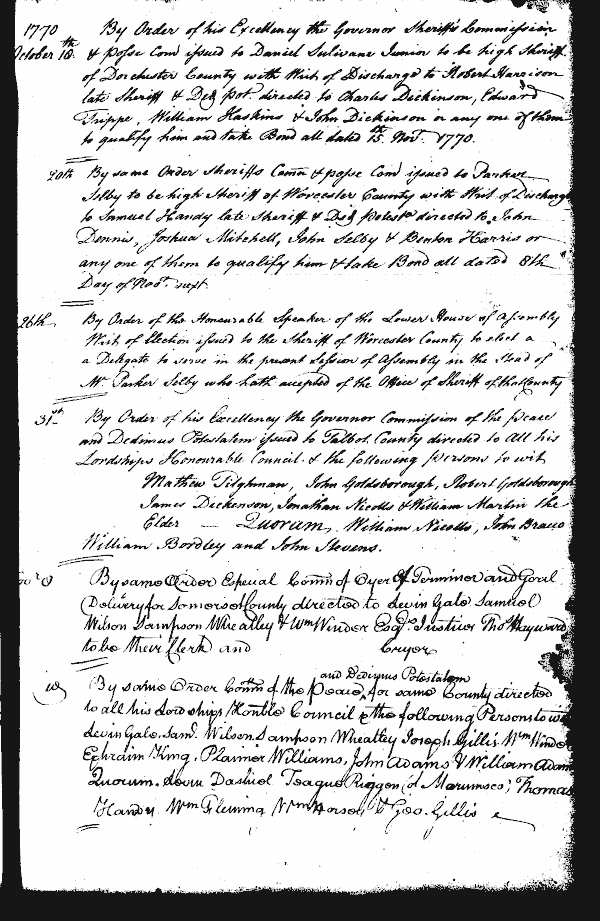 1770
October 18th By Order of his Excellency the Governor Sheriffs Commission
& posse Com issued to Daniel Sulivane Junior to be high Sheriff
of Dorchester County with Writ of Discharge to Robert Harrison
late Sheriff & Ded Pot. directed to Charles Dickinson, Edward
Trippe, William Haskins & John Dickinson or any one of them
to qualify him and take Bond all dated 15th Novr. 1770.
20th By same Order Sheriffs Comn & posse Com issued to Parker
Selby to be high Sheriff of Worcester County with Writ of Discharge
to Samuel Handy late Sheriff & Ded Potest directed to John
Dennis, Joshua Mitchell, John Selby & Benton Harris or
any one of them to qualify him & take Bond all dated 8th
Day of Novr. next.
26th By Order of the Honourable Speaker of the Lower House of Assembly
Writ of Election issued to the Sheriff of Worcester County to elect a
a Delegate to serve in the present Session of Assembly in the stead of
Mr Parker Selby who hath accepted of the Office of Sheriff of that County
31st By Order of his Excellency the Governor Commission of the peace
and Dedimus Potestatem issued to Talbot County directed to All his
Lordships Honourable Council & the following Persons to wit
Mathew Tilghman, John Goldsborough, Robert Goldsborough
James Dickenson, Jonathan Nicolls & William Martin the
Elder — Quorum, William Nicolls, John Bracco
William Bordley and John Stevens.
By same Order Especial Comn of Oyer & Terminer and Goal
Delivery for Somerset County directed to Levin Gale Samuel
Wilson Sampson Wheatley & Wm Winder Esqrs. Justices Thos Hayward
to be their Clerk and Cryer
and Dedimus Potestatem
By same Order Comn of the Peace, for same County directed
to all his Lordships Honble Council & the following Persons to wit
Levin Gale, Saml. Wilson, Sampson Wheatley Joseph Gillis Wm Winder
Ephraim King, Planner Williams, John Adams & William Adams
Quorum, Levin Dashiel Teague Riggen (of Marumsco) Thomas
Handy Wm Fleming Wm Horsey & Geo. Gillis